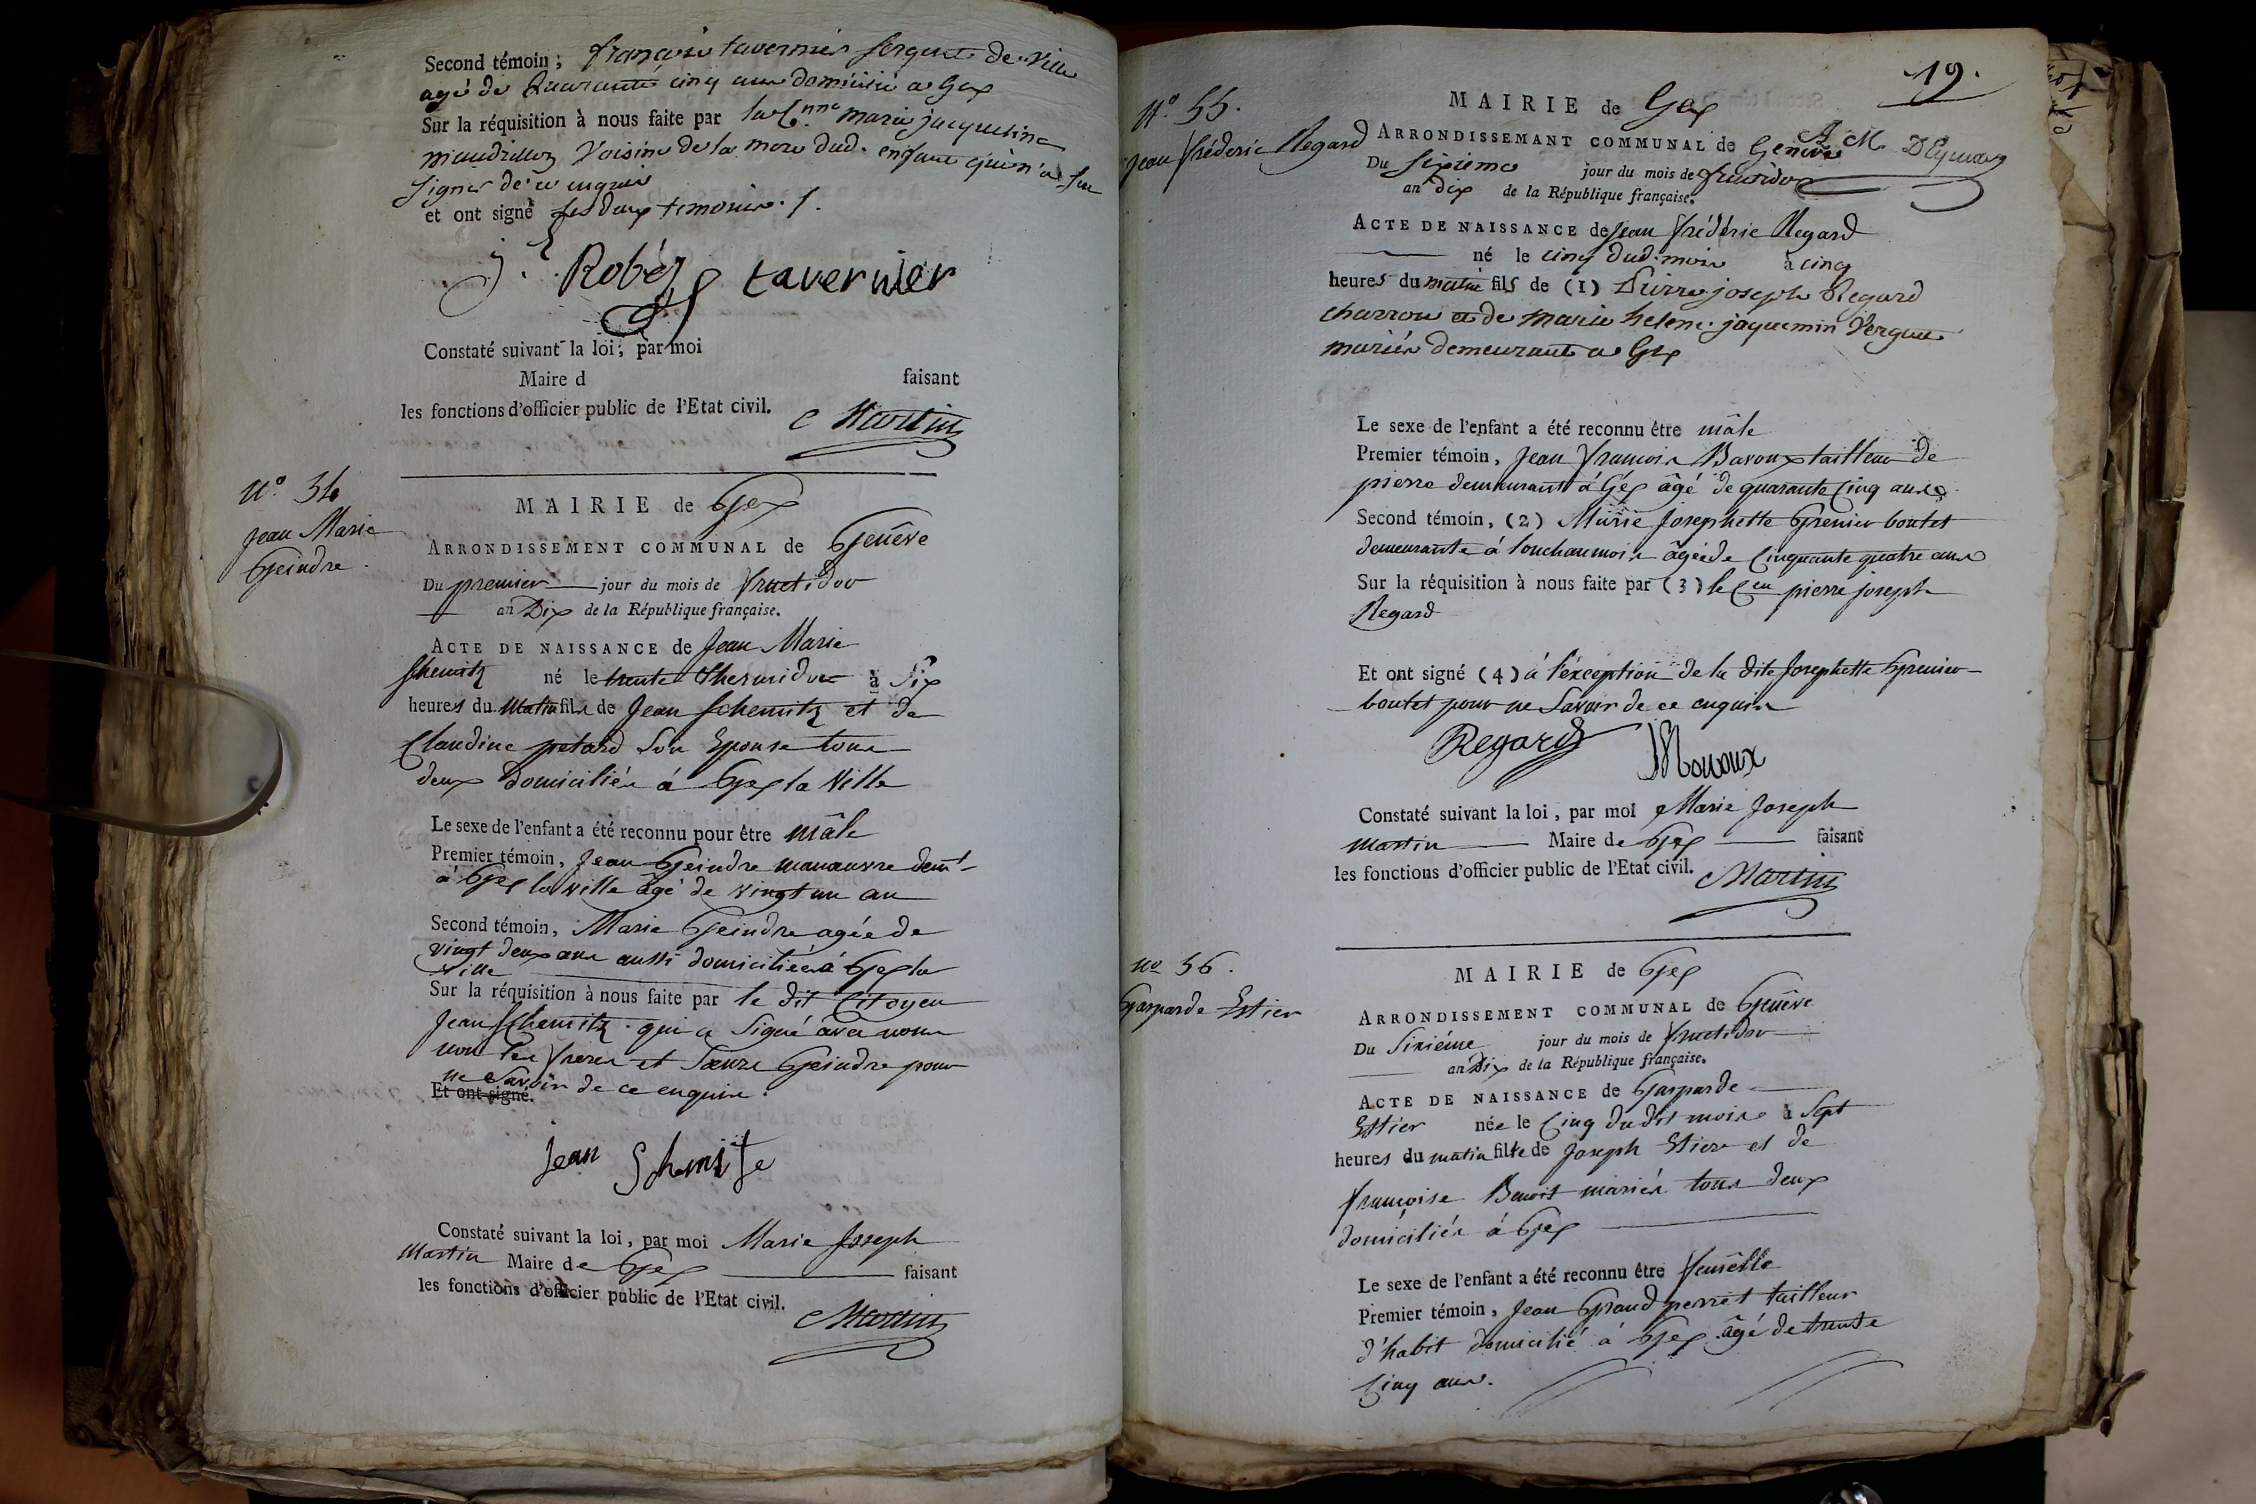 Second témoin; françois tavernier sergent de ville
agé de Quarante cinq ans domicilié a Gex
Sur la réquisition à nous faite par la C.nne marie jacqueline
voisine de la mere dud. enfant qui n'a su
signer de ce enquis
et ont signé les deux temoins.
j. Robéz tavernier
Constaté suivant la loi; par moi
Maire d faisant
les fonctions d'officier public de l'Etat civil. Martin
N.º 54
Jean Marie
Geindre
MAIRIE de Gex
ARRONDISSEMENT COMMUNAL de Genêve
Du premier jour du mois de fructidor
an Dix de la République française.
ACTE DE NAISSANCE de Jean Marie
Schemitz né le trente thermidor à Six
heures du Matin fils de Jean Schemitz et de
Claudine petard Son Epouse tous
deux Domiciliés á Gex la Ville
Le sexe de l'enfant a été reconnu pour être mâle
Premier témoin, Jean Geindre manœuvre demt
á Gex la ville âgé de vingt un an
Second témoin, Marie Geindre agée de
vingt deux ans aussi domiciliée á Gex la
ville
Sur la réquisition à nous faite par le dit Citoyen
Jean Schemitz qui a Signé avec nous
non les freres et Sœurs Geindre pour
ne Savoir de ce enquis.
Et ont signé.
jean Schmitz
Constaté suivant la loi, par moi Marie Joseph
Martin Maire de Gex faisant
les fonctions d'officier public de l'Etat civil.
Martin
19.
N.º 55.
Jean fréderic Regard
MAIRIE de Gex
ARRONDISSEMANT COMMUNAL de Genève
A M.
Du sixieme jour du mois de fructidor
an dix de la République française.
ACTE DE NAISSANCE de Jean fréderic Regard
né le cinq dud. mois à cinq
heures du matin fils de (1) Pierre joseph Regard
charron et de marie helene jaquemin Verguet
mariés demeurant a Gex
Le sexe de l'enfant a été reconnu être mâle
Premier témoin, Jean françois Bavoux tailleur de
pierre demeurant á Gex âgé de quarante Cinq ans
Second témoin, (2) Marie Josephette Grenier boutet
demeurante á lonchaumois âgée de Cinquante quatre ans
Sur la réquisition à nous faite par (3) le Cen pierre joseph
Regard
Et ont signé (4) á l'éxception de la dite Josephette Grenier
boutet pour ne Savoir de ce enquis
Regard
Constaté suivant la loi, par moi Marie Joseph
Martin Maire de Gex faisant
les fonctions d'officier public de l'Etat civil. Martin
no 56.
Gasparde Estier
MAIRIE de Gex
ARRONDISSEMENT COMMUNAL de Genêve
Du Sixiéme jour du mois de fructidor
an Dix de la République française.
ACTE DE NAISSANCE de Gasparde
Estier née le Cinq du dit mois à Sept
heures du matin fille de Joseph Estier et de
françoise Benoit mariés tous deux
domiciliés á Gex
Le sexe de l'enfant a été reconnu être femelle
Premier témoin, Jean Grand perret tailleur
d'habit domicilié á Gex âgé de trente
Cinq ans.